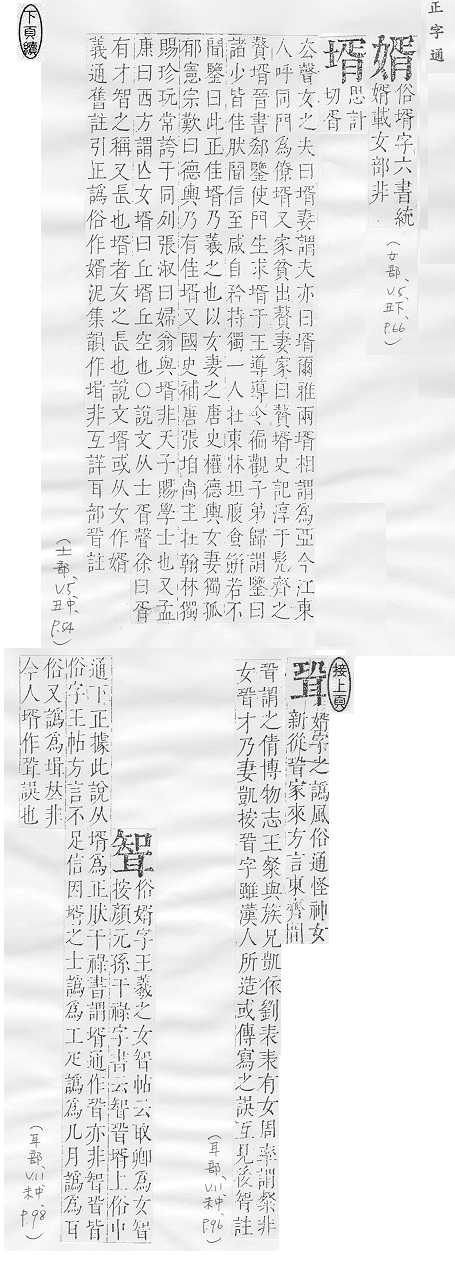 正字通
婿 俗壻字六書統
婿載女部非
(女部、V.5、丑下、P.66)
壻 思計
切胥
去聲女之夫曰壻妻謂夫亦曰壻爾雅兩壻相謂爲亞今江東
人呼同門爲僚壻又家貧出贅妻家曰贅壻史記淳于髡齊之
贅壻晉書郄鑒使門生求壻于王導導令徧觀子弟歸謂鑒曰
諸少皆佳肰聞信至咸自矜持獨一人在東牀坦腹食餅若不
聞鑒曰此正佳壻乃羲之也以女妻之唐史權德輿女妻獨孤
郁憲宗歎曰德輿乃有佳壻又國史補唐張垍尚主在翰林獨
賜珍玩常誇于同列張淑曰婦翁與壻非天子賜學士也又孟
康曰西方謂亾女壻曰丘壻丘空也○說文从士胥聲徐曰胥
有才智之稱又長也壻者女之長也說文壻或从女作婿
義通舊註引正譌俗作婿泥集韻作非互詳耳部聟註
(士部、V.5、丑中、P.54)
下頁續
接上頁
婿字之譌風俗通怪神女
新從聟家來方言東齊閒
聟謂之倩博物志王粲與族兄凱依劉表表有女周率謂粲非
女聟才乃妻凱按聟字雖漢人所造或傳寫之誤互見後註
(耳部、V.11、未中、P.96)
俗婿字王羲之女帖云取卿爲女
按顏元孫干祿字書云聟壻上俗中
通下正據此說从壻爲正肰干祿書謂壻通作聟亦非聟皆
俗字王帖方言不足信因壻之士譌爲工疋譌爲几月譌爲耳
俗又譌爲𠀤非
今人壻作誤也
(耳部、V.11、未中、P.98)